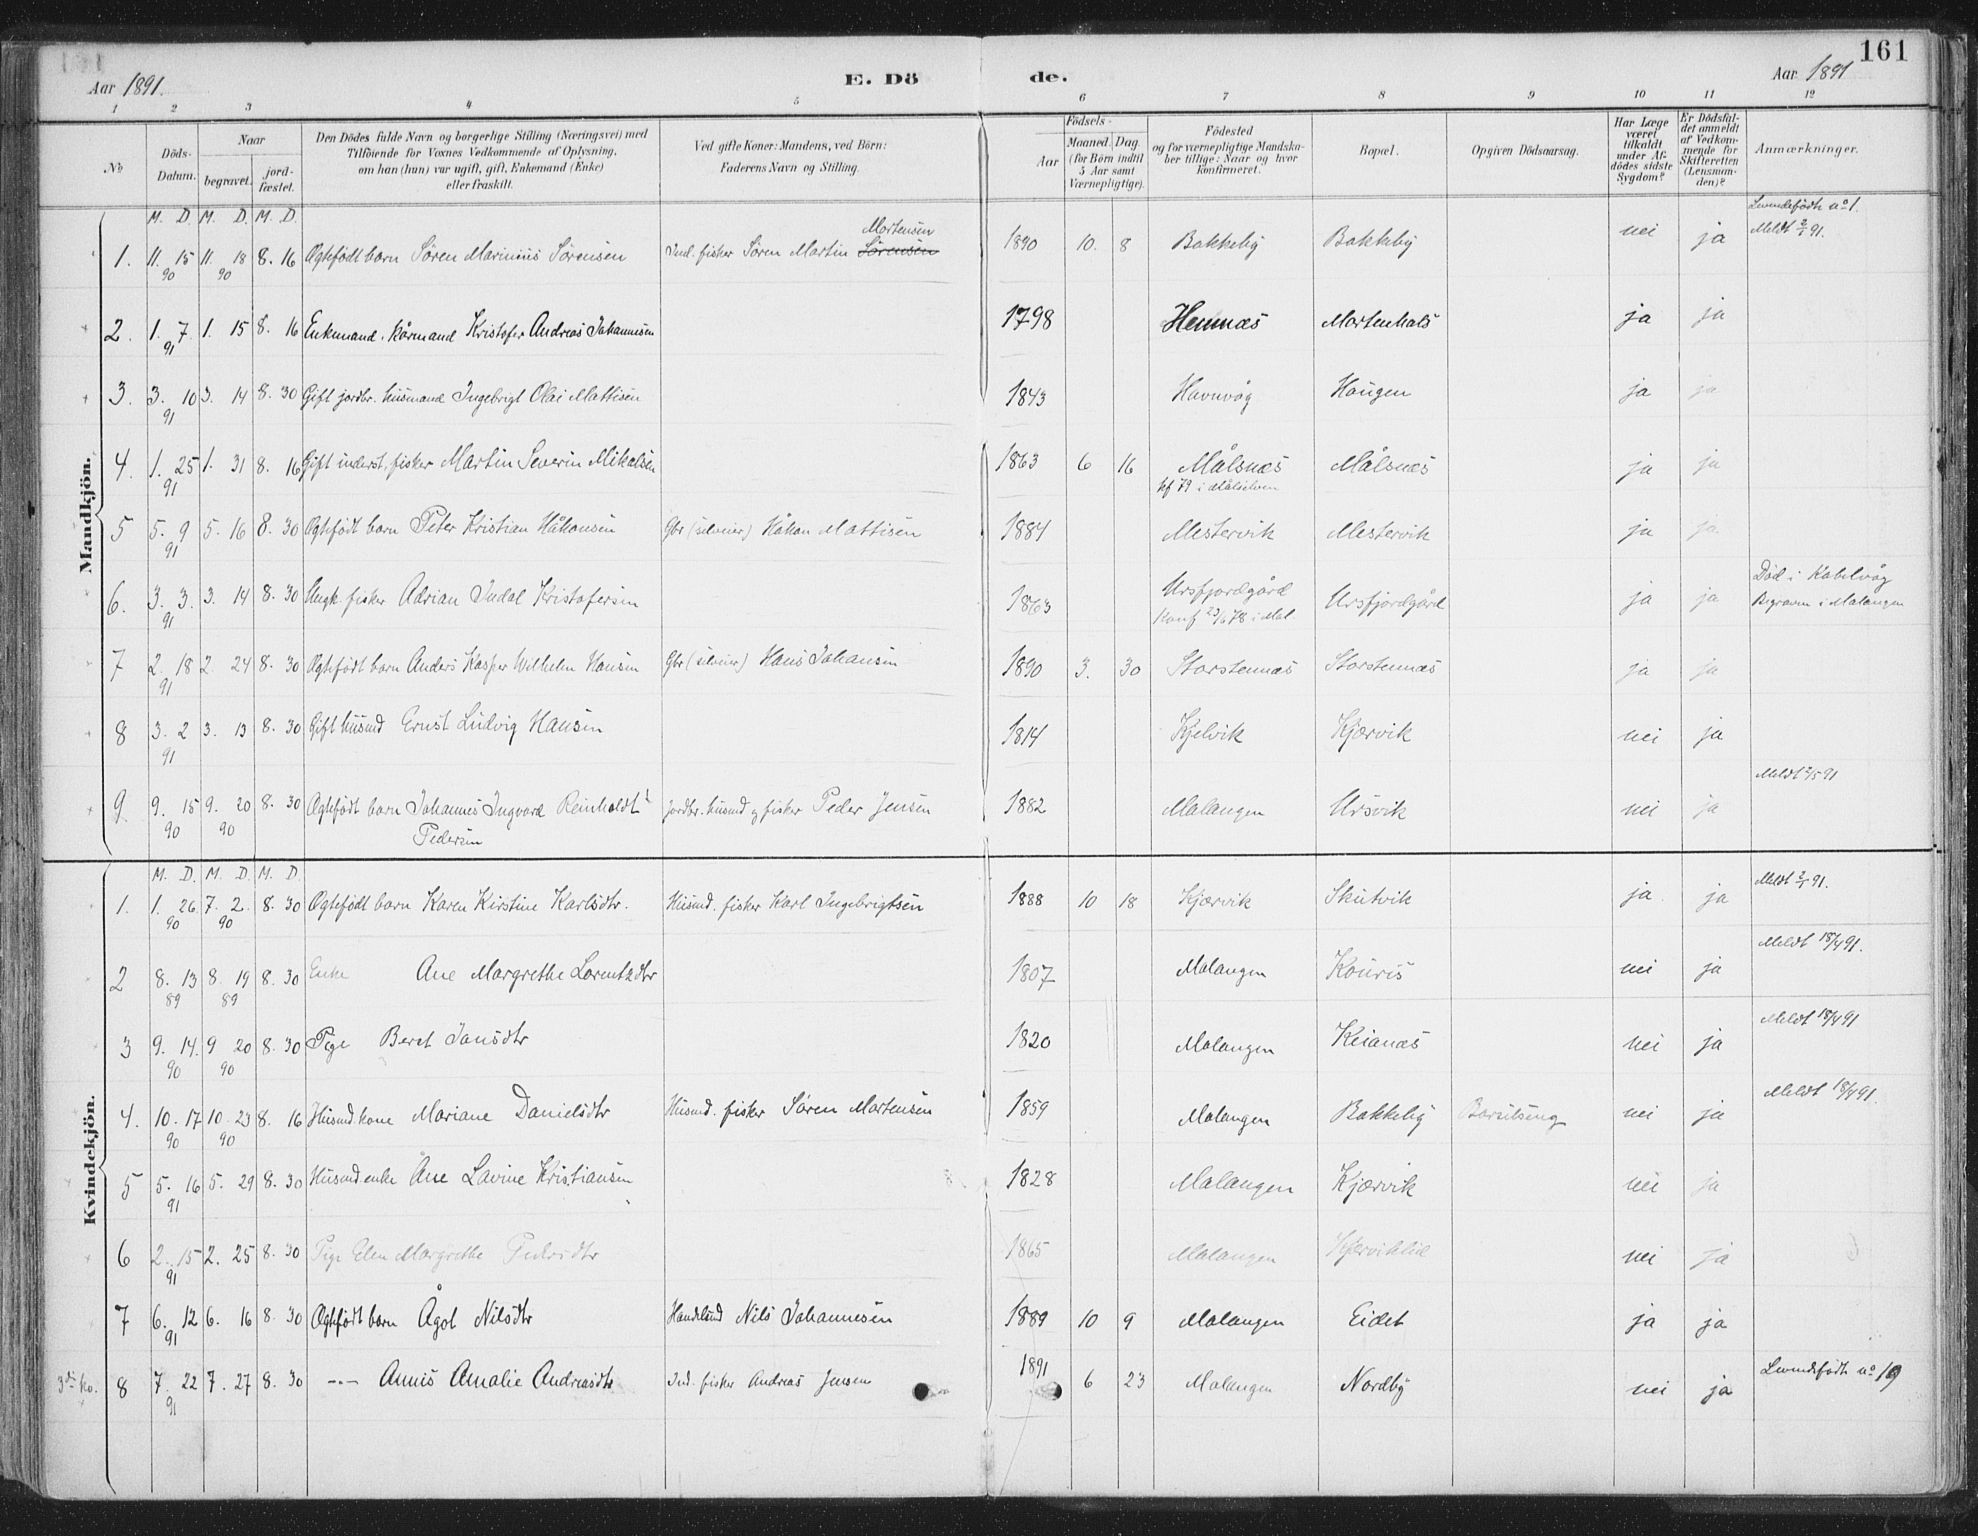 161
Aar 1891.
E. Dö de.
Aar 1891
1 2 3 4 5 6 7 8 9 10 11 12
No
Döds-Datum.
Naar
begravet.
jord-fæstet.
Den Dödes fulde Navn og borgerlige Stilling (Næringsvei) med
Tilföiende for Voxnes Vedkommende af Oplysning,
om han (hun) var ugift, gift, Enkemand (Enke)
eller fraskilt.
Ved gifte Koner: Mandens, ved Börn:
Faderens Navn og Stilling.
Födsels-
Aar
Maaned. Dag.
(for Börn indtil
5 Aar samt
Værnepligtige).
Födested
og for værnepligtige Mandska-
ber tillige: Naar og hvor
konfirmeret.
Bopæl.
Opgiven Dödsaarsag.
Har Læge
været
tilkaldt
under Af-
dödes sidste
Sygdom?
Er Dödsfal-
det anmeldt
af Vedkom-
mende for
Skifteretten
(Lensman-
den)?
Anmærkninger.
Mandkjön.
M. D. M. D. M. D.
1. 11. 15 90 11. 18 90 8. 16 Ægtefødt barn Søren Marinius Sørensen Ind. fisker Søren Martin Sörensen Mortensen 1890 10. 8 Bakkeby Bakkeby nei ja Levendefødte no 1. Meldt 2/1 91.
2. 1. 7 91 1. 15 8. 16 Enkemand, kårmand Kristofer Andreas Johannesen 1798 Hemnæs Mortenhals ja ja
3. 3. 10 91 3. 14 8. 30 Gift jordbr. husmand Ingebrigt Olai Mattisen 1843 Havnvåg Haugen ja ja
4. 1. 25 91 1. 31 8. 16 Gift inderst, fisker Martin Severin Mikalsen 1863 6 16 Målsnæs kf 79 i Målselven Målsnæs ja ja
5 5. 9 91 5. 16 8. 30 Ægtefødt barn Peter Kristian Håkonsen Gbr (selveier) Håkon Mattisen 1884 Mestervik Mestervik ja ja
6. 3. 3. 91 3. 14 8. 30 Ungk. fisker Adrian Indal Kristofersen 1863 Ursfjordgård Konf 23/6 78 i Mal. Ursfjordgård ja ja Død i Kabelvåg Begraven i Malangen
7 2. 18 91 2. 24 8. 30 Ægtefødt barn Anders Kasper Wilhelm Hansen Gbr (selveier) Hans Johansen 1890 3. 30 Storstennæs Storstennæs ja ja
8 3. 2 91 3. 13 8. 30 Gift husmd Ernst Ludvig Hansen 1814 Kjelvik Kjærvik nei ja
9. 9. 15 90 9. 20 90 8. 30 Ægtefødt barn Johannes Ingvard Reinholdt Pedersen Jordbr. husmd og fisker Peder Jensen 1882 Malangen Ursvik nei ja Meldt 2/5 91
Kvindekjön.
M. D. M. D. M. D.
1. 1. 26 90 7. 2 90 8. 30 Ægtefødt barn Karen Kirstine Karlsdtr. Husmd. fisker Karl Ingebrigtsen 1888 10 18 Kjærvik Skutvik ja ja Meldt 2/1 91.
2 8. 13 89 8. 19 89 8. 30 Enke Ane Margrethe Lorentzdtr 1807 Malangen Kouris nei ja Meldt 18/4 91.
3 9. 14. 90 9 20 90 8. 30 Pige Beret Jonsdtr 1820 Malangen Keianæs nei ja Meldt 18/4 91
4. 10. 17 90 10. 23 90 8. 16 Husmd kone Mariane Danielsdtr Husmd. fisker Søren Mortensen 1859 Malangen Bakkeby Barselseng nei ja Meldt 18/4 91.
5 5. 16 91 5. 29 8. 30 Husmd enke Ane Lavine Kristiansen 1828 Malangen Kjærvik nei ja
6 2. 15 91 2. 25 8. 30 Pige Elen Margrethe Pedersdtr 1865 Malangen Kjærviklid nei ja
7 6. 12 91 6. 16 8. 30 Ægtefødt barn Ågot Nilsdtr Handelsmd Nils Johannesen 1889 10 9 Malangen Eidet ja ja
3die ko. 8 7. 22 91 7. 27 8. 30 -"- Annis Amalie Andreasdtr Ind. fisker Andreas Jensen 1891 6 23 Malangen Nordby nei ja Levendefødte no 19